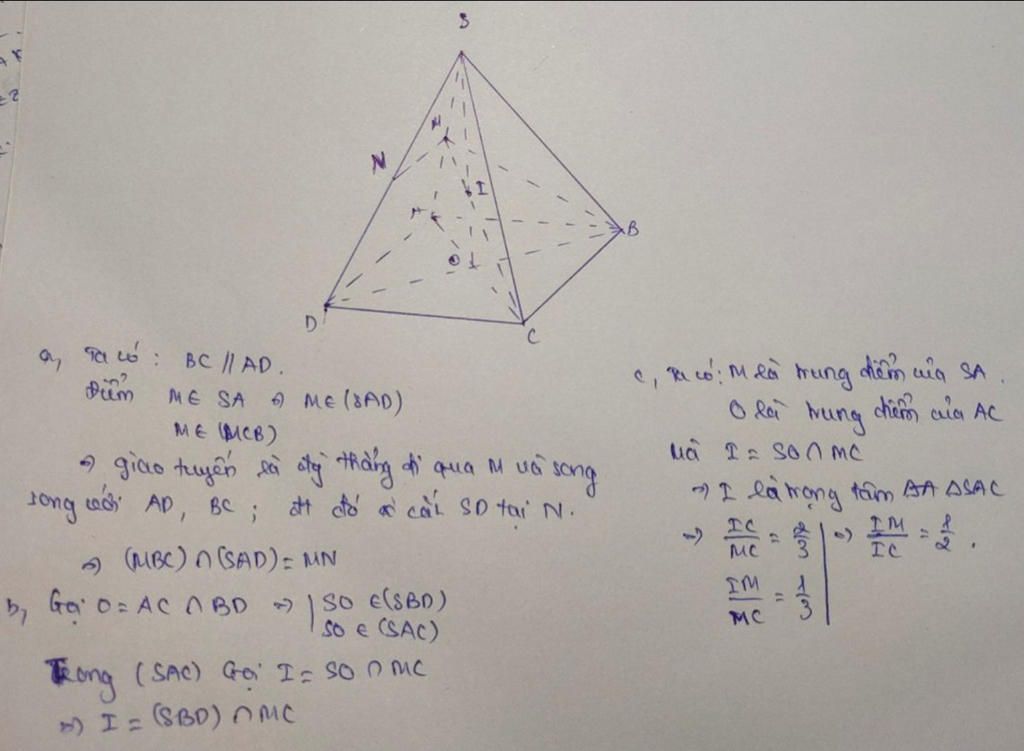 S
M
N
I
B
O
D
C
a, Ta có : BC // AD.
Điểm M ∈ SA ⇒ M ∈ (SAD)
M ∈ (MCB)
⇒ giao tuyến là đg thẳng đi qua M và song
song với AD, BC ; đt đó cắt SD tại N.
⇒ (MBC) ∩ (SAD) = MN
b, Gọi O = AC ∩ BD ⇒ | SO ∈ (SBD)
SO ∈ (SAC)
Trong (SAC) Gọi I = SO ∩ MC
⇒ I = (SBD) ∩ MC
c, Ta có : M là trung điểm của SA .
O là trung điểm của AC
Mà I = SO ∩ MC
⇒ I là trọng tâm ΔSAC
⇒ IC/MC = 2/3 | ⇒ IM/IC = 1/2 .
IM/MC = 1/3